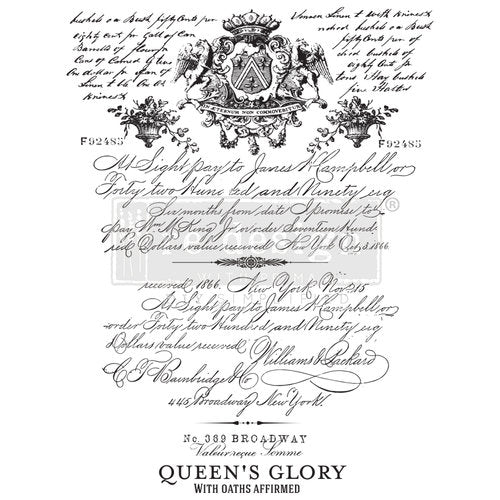 bushels on Bush fifty Cents per
eighty Cent for Gall of Can
Barrells of flour for
Cons of Colored
One dollar for
bushels of
eighty Cent for
Hay bushels
IN ÆTERNUM NON COMMOVEBITUR
F92485
F92485
At Sight pay to James W Campbell or
Forty two Hundred and Ninety eig
Six months from date I promise to
pay Wm McKing Jr or order Seventeen Hund
red Dollars value received New York Oct, 3, 1866.
re-design
WITH PRIMA
®
received 1866. New York Nov 215
At Sight pay to James W Campbell, or
order Forty two Hundred and Ninety eig
Dollars value received Williams & Packard
C. T. Bainbridge & Co
445 Broadway New York
No. 389 BROADWAY
Valeur reçue Somme
QUEEN'S GLORY
WITH OATHS AFFIRMED